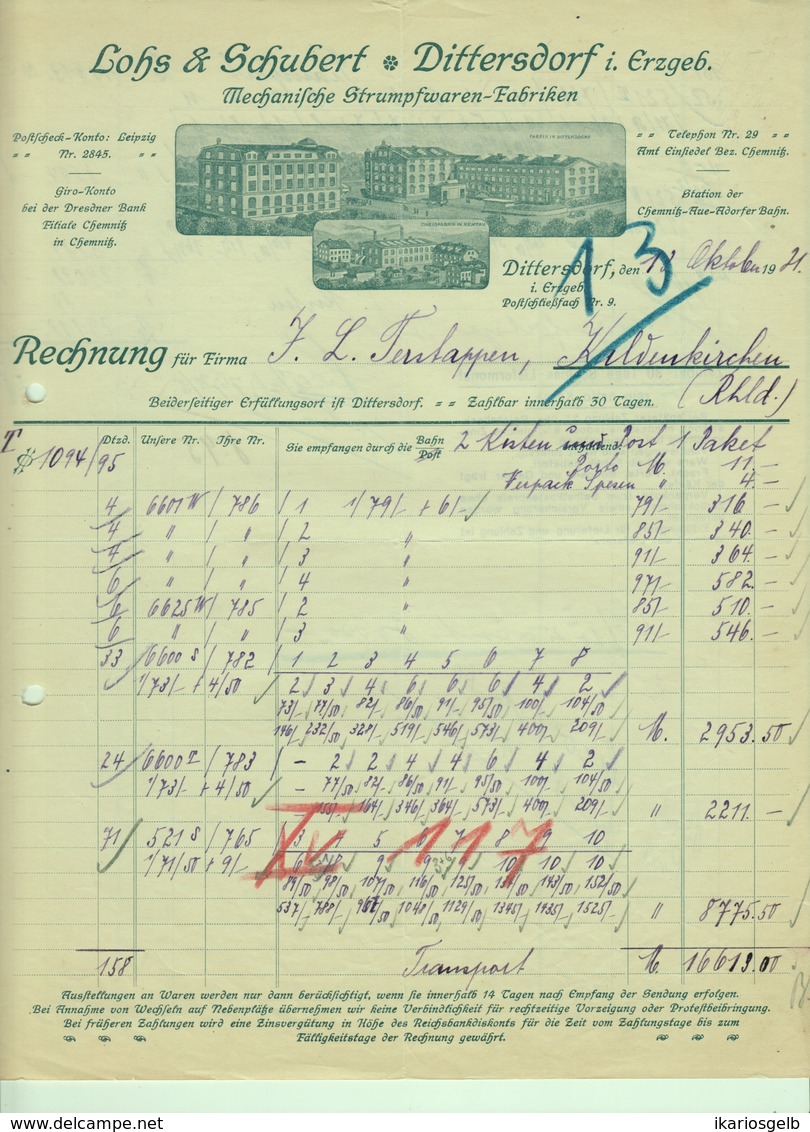 Lohs & Schubert * Dittersdorf i. Erzgeb.
Mechanische Strumpfwaren-Fabriken
Postscheck-Konto: Leipzig
" " Nr. 2845. " "
Giro-Konto
bei der Dresdner Bank
Filiale Chemnitz
in Chemnitz.
FABRIK IN DITTERSDORF
" " Telephon Nr. 29 " "
Amt Einsiedel Bez. Chemnitz.
Station der
Chemnitz-Aue-Adorfer Bahn.
13
Dittersdorf, den 12 Oktober 1921.
i. Erzgeb.
Postschließfach Nr. 9.
Rechnung für Firma J. L. Terstappen, Kaldenkirchen
(Rhld.)
Beiderseitiger Erfüllungsort ist Dittersdorf. " " Zahlbar innerhalb 30 Tagen.
Dtzd. Unsere Nr. Ihre Nr. Sie empfangen durch die Bahn Post 2 Kisten und Post 1 Paket
T
1094/95
Porto M. 11.–
Verpack. Spesen " 4.–
4 6601 W / 786 / 1 1/79/– + 6/– 79/– 316.–
4 " / " / 2 " 85/– 340.–
4 " / " / 3 91/– 364.–
6 " / " / 4 " 97/– 582.–
6 6625 W / 785 / 2 " 85/– 510.–
6 " / " / 3 " 91/– 546.–
33 6600 S / 782 / 1 2 3 4 5 6 7 8
1/73/– + 4/50 2 3 4 6 6 6 4 2
73/– 77/50 82/– 86/50 91/– 95/50 100/– 104/50
146/– 232/50 328/– 519/– 546/– 573/– 400/– 209/– M. 2953.50
24 6600 T / 783 – 2 2 4 4 6 4 2
1/73/– + 4/50 – 77/50 82/– 86/50 91/– 95/50 100/– 104/50
– 155/– 164/– 346/– 364/– 573/– 400/– 209/– " 2211.–
71 521 S / 765 3 4 5 6 7 8 9 10
IV 117
1/71/50 + 9/– 6 8 9 9 9 10 10 10
89/50 98/50 107/50 116/50 125/50 134/50 143/50 152/50
537/– 788/– 967/50 1048/50 1129/50 1345/– 1435/– 1525/– " 8775.50
158 Transport M. 16613.00
Ausstellungen an Waren werden nur dann berücksichtigt, wenn sie innerhalb 14 Tagen nach Empfang der Sendung erfolgen.
Bei Annahme von Wechseln auf Nebenplätze übernehmen wir keine Verbindlichkeit für rechtzeitige Vorzeigung oder Protestbeibringung.
Bei früheren Zahlungen wird eine Zinsvergütung in Höhe des Reichsbankdiskonts für die Zeit vom Zahlungstage bis zum
Fälligkeitstage der Rechnung gewährt.
www.delcampe.net
ikariosgelb